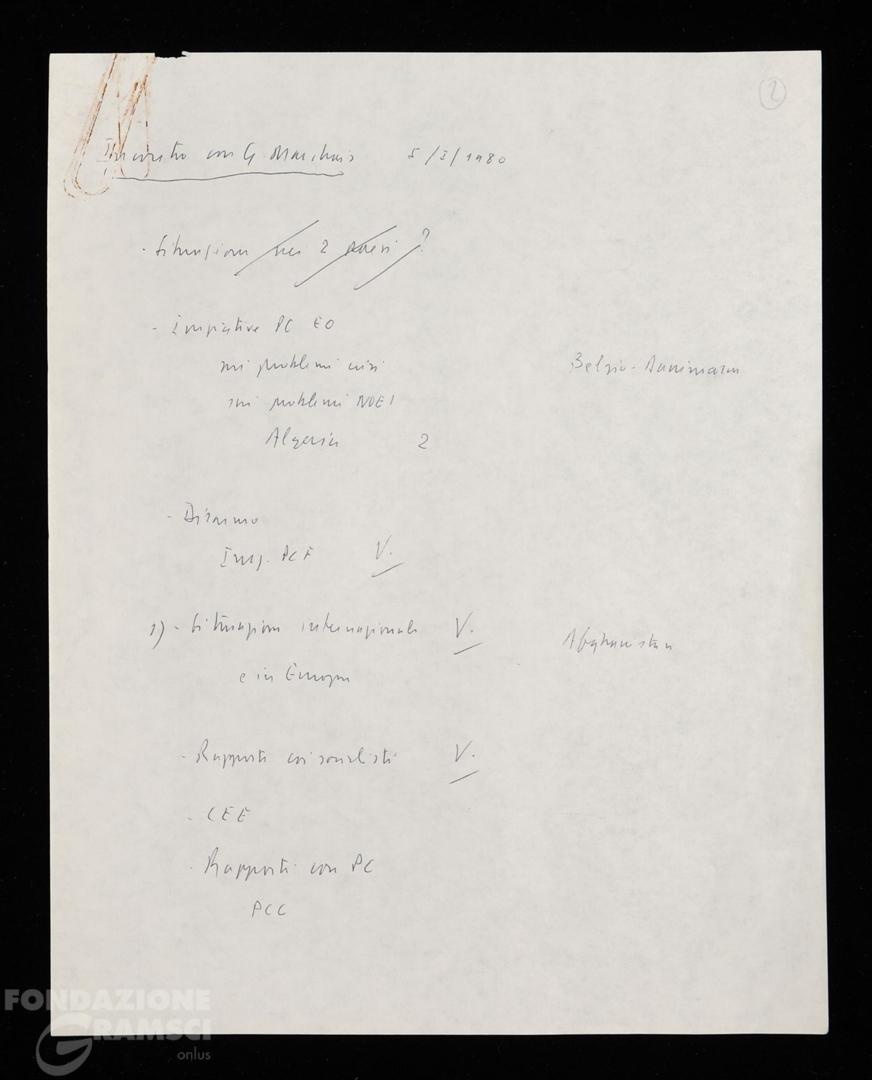 2
Incontro con G. Marchais 5/I/1980
- Situazioni nei 2 paesi ?
- Iniziative PC EO
sui problemi crisi
Belgio - Danimarca
sui problemi NOEI
Algeria 2
- Disarmo
Iniz. PCF V.
1) - Situazione internazionale V.
e in Europa
Afghanistan
- Rapporti coi socialisti V.
- CEE
- Rapporti con PC
PCC
FONDAZIONE
GRAMSCI
onlus